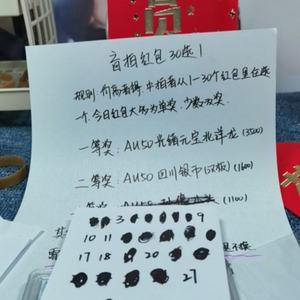 盲拍红包30选1
规则:价高者得,中拍者从1-30个红包里任选
一个.今日红包大部分为单奖,少数为双奖
一等奖: AU50 光绪元宝北洋龙 (3500)
二等奖: AU50 四川银币 (1600)
AU50 (1100)
3 9
10 11
17 18 20
27